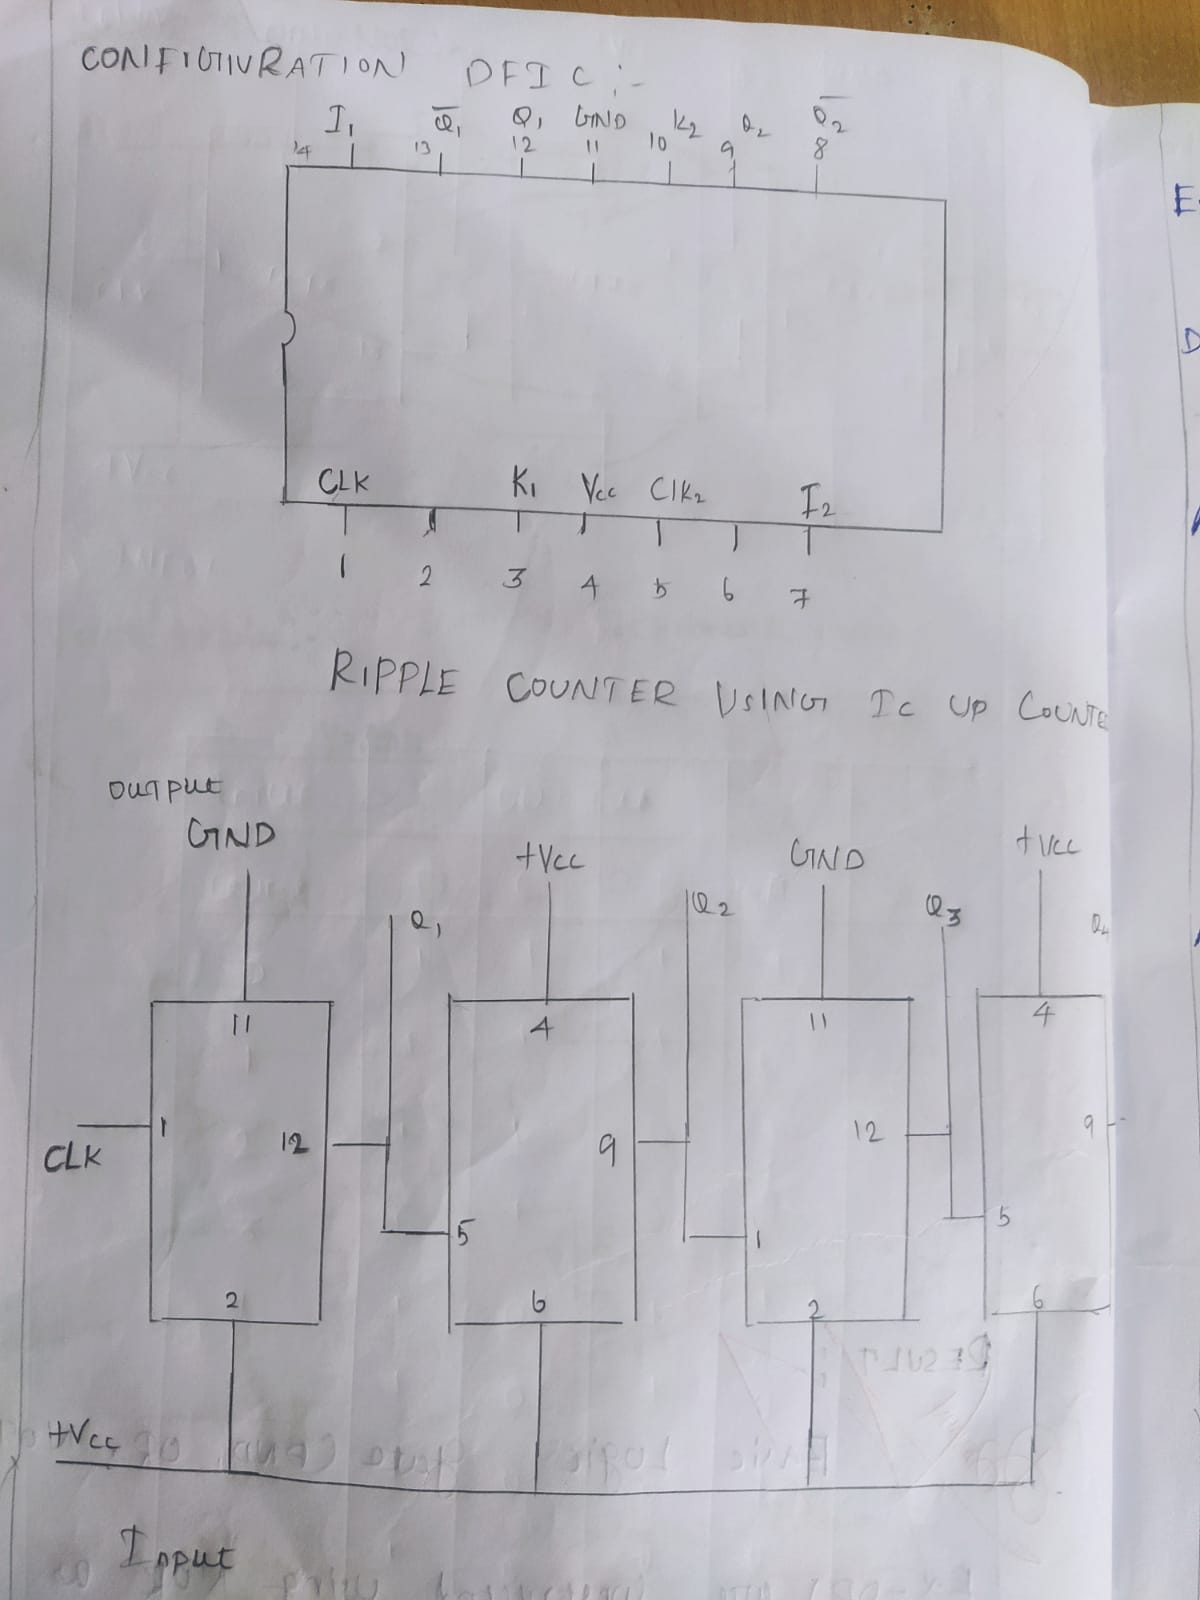 CONFIGIURATION OF IC :-
I1 Q̅1 Q1 GND K2 Q2 Q̅2
14 13 12 11 10 9 8
CLK K1 Vcc ClK2 I2
1 2 3 4 5 6 7
RIPPLE COUNTER USING IC UP COUNTE
OUTPUT
GND +Vcc GND +Vcc
Q1 Q2 Q3 Q4
11 4 11 4
CLK 1 12 9 12 9
5 1 5
2 6 2 6
+Vcc
Input